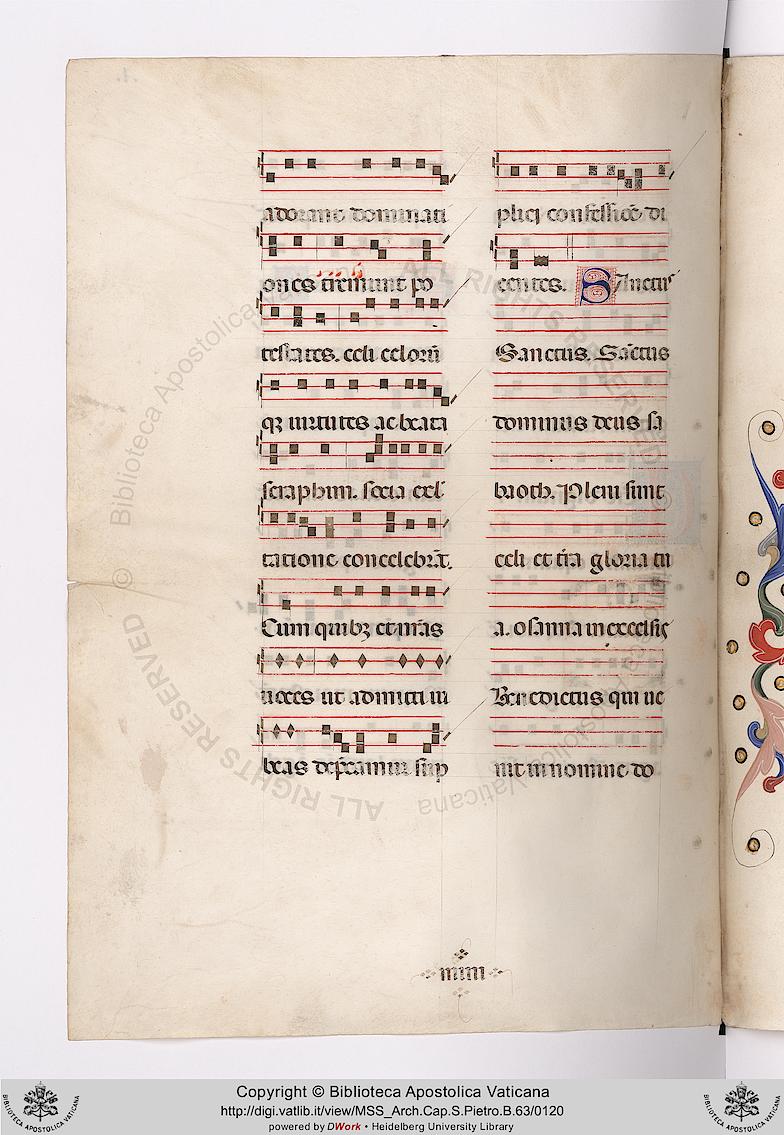 adorant dominati
ones tremunt po
testates. celi celorū
qꝫ uirtutes ac beata
seraphim. socia exul
tatione concelebrāt.
Cum quibꝫ et nr̄as
uoces ut admitti iu
beas deprecamur sup
plici confessiōe di
centes. Sanctus
Sanctus. Sāctus
dominus deus sa
baoth. Pleni sunt
celi et t̄ra gloria tu
a. osanna in excelsis
Benedictus qui ue
nit in nomine do
ALL RIGHTS RESERVED © Biblioteca Apostolica Vaticana
Copyright © Biblioteca Apostolica Vaticana
http://digi.vatlib.it/view/MSS_Arch.Cap.S.Pietro.B.63/0120
powered by DWork • Heidelberg University Library